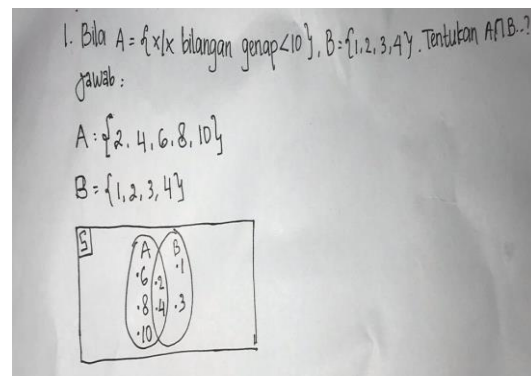 1. Bila A = {x/x bilangan genap<10}, B = {1,2,3,4}. Tentukan A∩B..?
Jawab :
A : {2. 4, 6. 8, 10}
B = {1, 2, 3, 4}
S
A B
.6 .2 .1
.8 .4 .3
.10